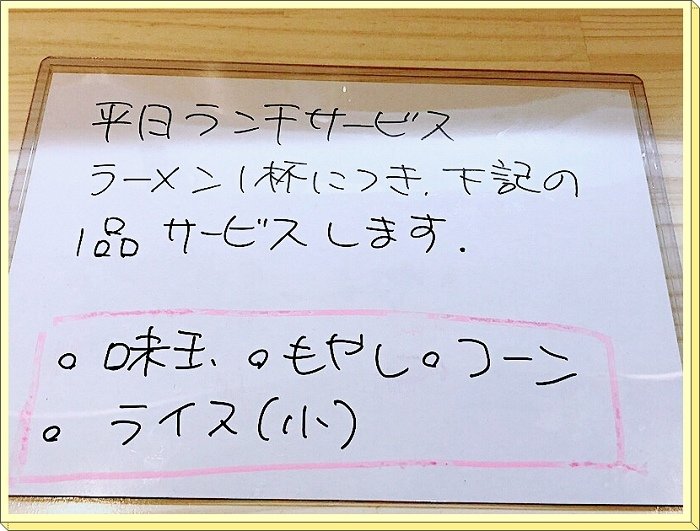 平日ランチサービス
ラーメン1杯につき、下記の
1品サービスします.
○味玉、○もやし○コーン
○ライス(小)